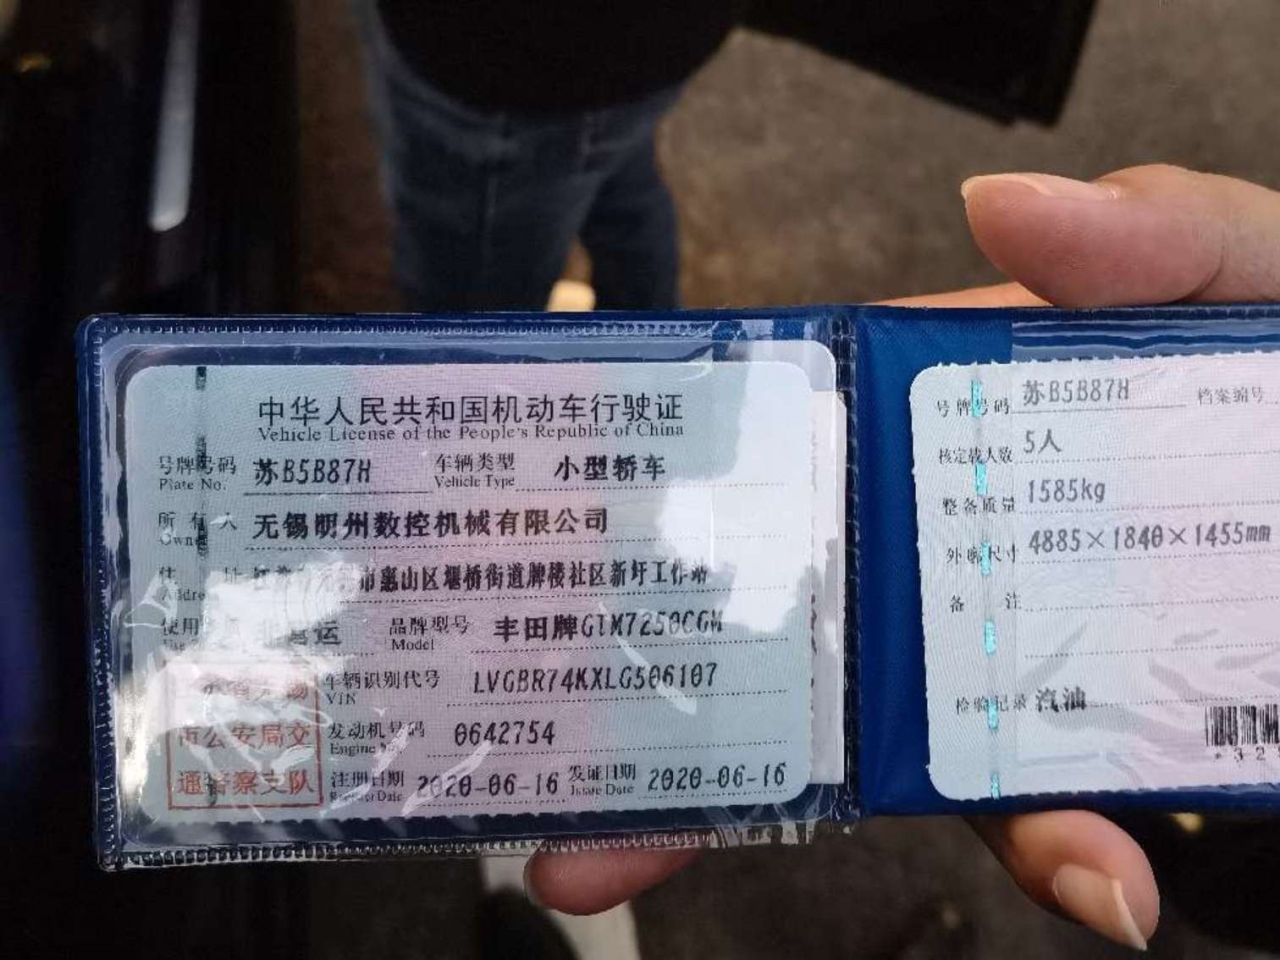 中华人民共和国机动车行驶证
Vehicle License of the People's Republic of China
号牌号码 苏B5B87H 车辆类型 小型轿车
Plate No. Vehicle Type
所有人 无锡明州数控机械有限公司
Owner
住 址 市惠山区堰桥街道牌楼社区新圩工作站
Addre
使用 非营运 品牌型号 丰田牌GTM7250CGM
Model
车辆识别代号 LVGBR74KXLG506107
VIN
发动机号码 0642754
Engine No.
注册日期 2020-06-16 发证日期 2020-06-16
Register Date Issue Date
市公安局交
通警察支队
号牌号码 苏B5B87H 档案编号
核定载人数 5人
整备质量 1585kg
外廓尺寸 4885×1840×1455mm
备 注
检验记录 汽油
*32